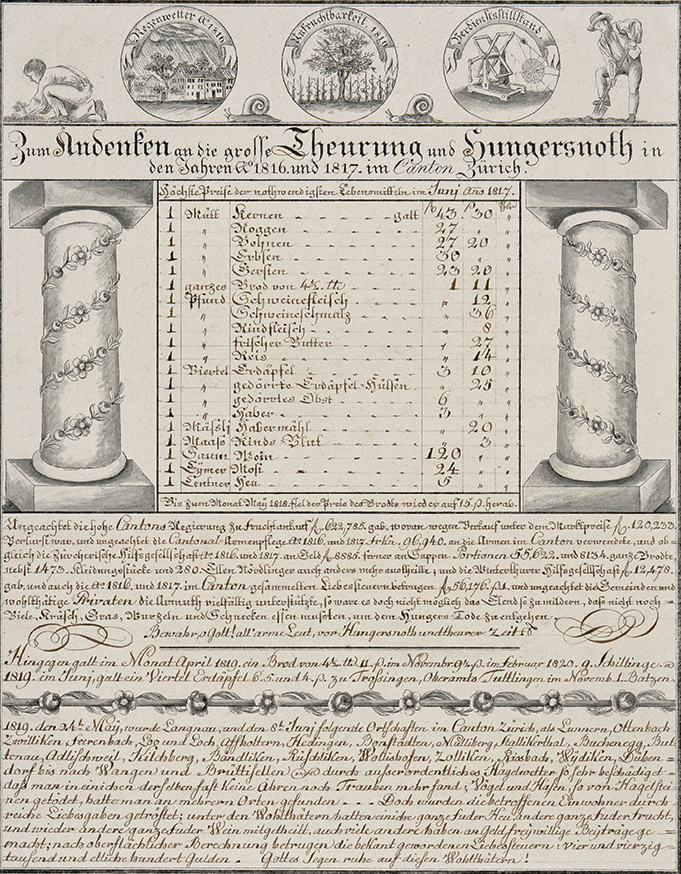 Regenwetter Aº 1816.
Unfruchtbarkeit 1816
Verdienststillstand
Zum Andenken an die grosse Theurung und Hungersnoth in
den Jahren Aº 1816. und 1817. im Canton Zürich.
Höchste Preise der nothwendigsten Lebensmitteln im Junj Ano 1817.
1 Mütt Kernen galt 43 30 "
1 " Roggen 27 " "
1 " Bohnen 27 20 "
1 " Erbsen 30 " "
1 " Gersten 23 20 "
1 ganzes Brod von 4½ tt 1 11 "
1 Pfund Schweinefleisch " 12 "
1 " Schweineschmalz " 36 "
1 " Rindfleisch " 8 "
1 " frischer Butter " 27 "
1 " Reis " 14 "
1 Viertel Erdäpfel 3 10 "
1 " gedörrte Erdäpfel Hülsen " 25 "
1 " gedörrtes Obst 6 " "
1 " Haber 3 " "
1 Mässlj Habermähl " 20 "
1 Maass Rinds Blut " 3 "
1 Saum Wein 120 " "
1 Eÿmer Most 24 " "
1 Centner Heu 5 " "
Bis zum Monat Maÿ 1818. fiel der Preis des Brodts wieder auf 15 ß. herab.
Ungeachtet die hohe Cantons Regierung zu Fruchtankauf fl. 622,785. gab, woran wegen Verkauf unter dem Marktpreise fl. 120,233.
Verlurst war, und ungeachtet die Cantonal Armenpflege Aº 1816. und 1817. frkn. 96,940. an die Armen im Canton verwendete, und ob-
gleich die Zürcherische Hilfsgesellschaft Aº 1816. und 1817. an Geld fl. 8885. ferner an Suppen Portionen 55,622. und 8134. ganze Brodte,
nebst 1473. Kleidungsstücke und 280. Ellen Nördlinger auch anders mehr austheilte; und die Winterthurer Hilfsgesellschaft fl. 12,478.
gab, und auch die Aº 1816. und 1817. im Canton gesammelten Liebessteuern betrugen fl. 56,176. ß 1. und ungeachtet die Gemeinden und
wohlthätige Privaten die Armuth vielfältig unterstützte, so ware es doch nicht möglich das Elend so zu mildern, dass nicht noch
Viele, Krüsch, Gras, Wurzeln und Schnecken essen mussten, um dem Hungers Tode zu entgehen.
Bewahr, o Gott! all' arme Leut, vor Hungersnoth und theurer Zeit
Hingegen galt im Monat April 1819. ein Brod von 4½ tt 11. ß. im Novembr 9½ ß. im februar 1820. 9. Schillinge.
1819. im Junj, galt ein Viertel Erdäpfel 6. 5. und 4. ß. zu Trossingen, Oberamts Tuttlingen im Novemb. 1. Batzen
1819. den 24t. Maÿ, wurde Langnau, und den 8t. Junj folgende Ortschaften im Canton Zürich, als Lunnern, Ottenbach
Zwilliken, Feerenbach, Loo und Loch, Affholtern, Hedingen, Bonstädten, Mülliberg, Stallikerthal, Buchenegg, But-
tenau, Adlischweil, Kilchberg, Bändliken, Rüschliken, Wolishofen, Zolliken, Riesbach, Wÿdiken, Düben-
dorf bis nach Wangen und Brüttisellen durch ausserordentliches Hagelwetter so sehr beschädiget
dass man in einichen derselben fast keine Ähren noch Trauben mehr fand, Vögel und Hasen, so von Hagelstei-
nen getödet, hatte man an mehrern Orten gefunden . . . Doch wurden die betroffenen Einwohner durch
reiche Liebesgaben getröstet; unter den Wohlthätern hatten einiche ganze fuder Heu, andere ganze fuder frucht,
und wieder andere ganze fuder Wein mitgetheilt, auch viele andere haben an Geld freywillige Beÿträge ge-
macht; nach oberflächlicher Berechnung betrugen die bekant gewordenen Liebessteuern: vier und vierzig-
tausend und etliche hundert Gulden. Gottes Segen ruhe auf diesen Wohlthätern!